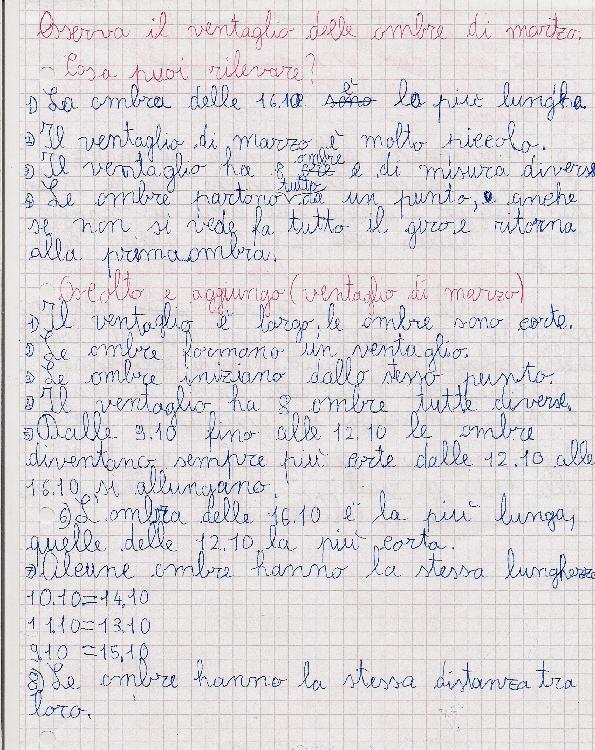 Osserva il ventaglio delle ombre di martzo.
- Cosa puoi rilevare?
1) La ombra delle 16.10 è la più lungha
2) Il ventaglio di marzo è molto piccolo.
3) Il ventaglio ha 8 ombre e di misura diverse
4) Le ombre partono da un punto, e anche
se non si vede fa tutto il giro e ritorna
alla prima ombra.
Ascolto e aggiungo (ventaglio di marzo)
1) Il ventaglio è largo, le ombre sono corte.
2) Le ombre formano un ventaglio.
3) Le ombre iniziano dallo stesso punto.
4) Il ventaglio ha 8 ombre tutte diverse.
5) Dalle 9.10 fino alle 12.10 le ombre
diventano sempre più corte dalle 12.10 alle
16.10 si allungano.
6) L'ombra delle 16.10 è la più lunga,
quelle delle 12.10 la più corta.
7) Alcune ombre hanno la stessa lunghezza
10.10=14.10
11.10=13.10
9.10 =15.10
8) Le ombre hanno la stessa distanza tra
loro.